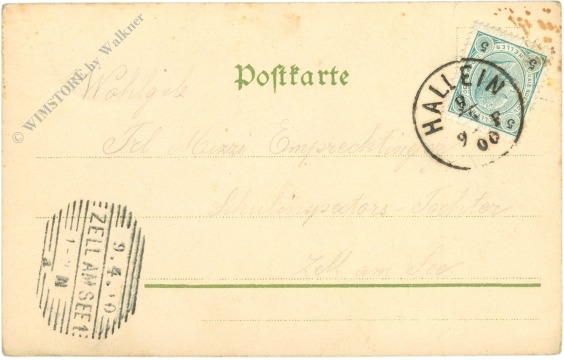 © WIMSTORE by Walkner
Postkarte
5 5
5
HALLEIN
9 00
Wohlgeb
Frl Mizzi Emprechtinger
Schulinspectors-Tochter
Zell am See
9.4.00
ZELL AM SEE 1
N